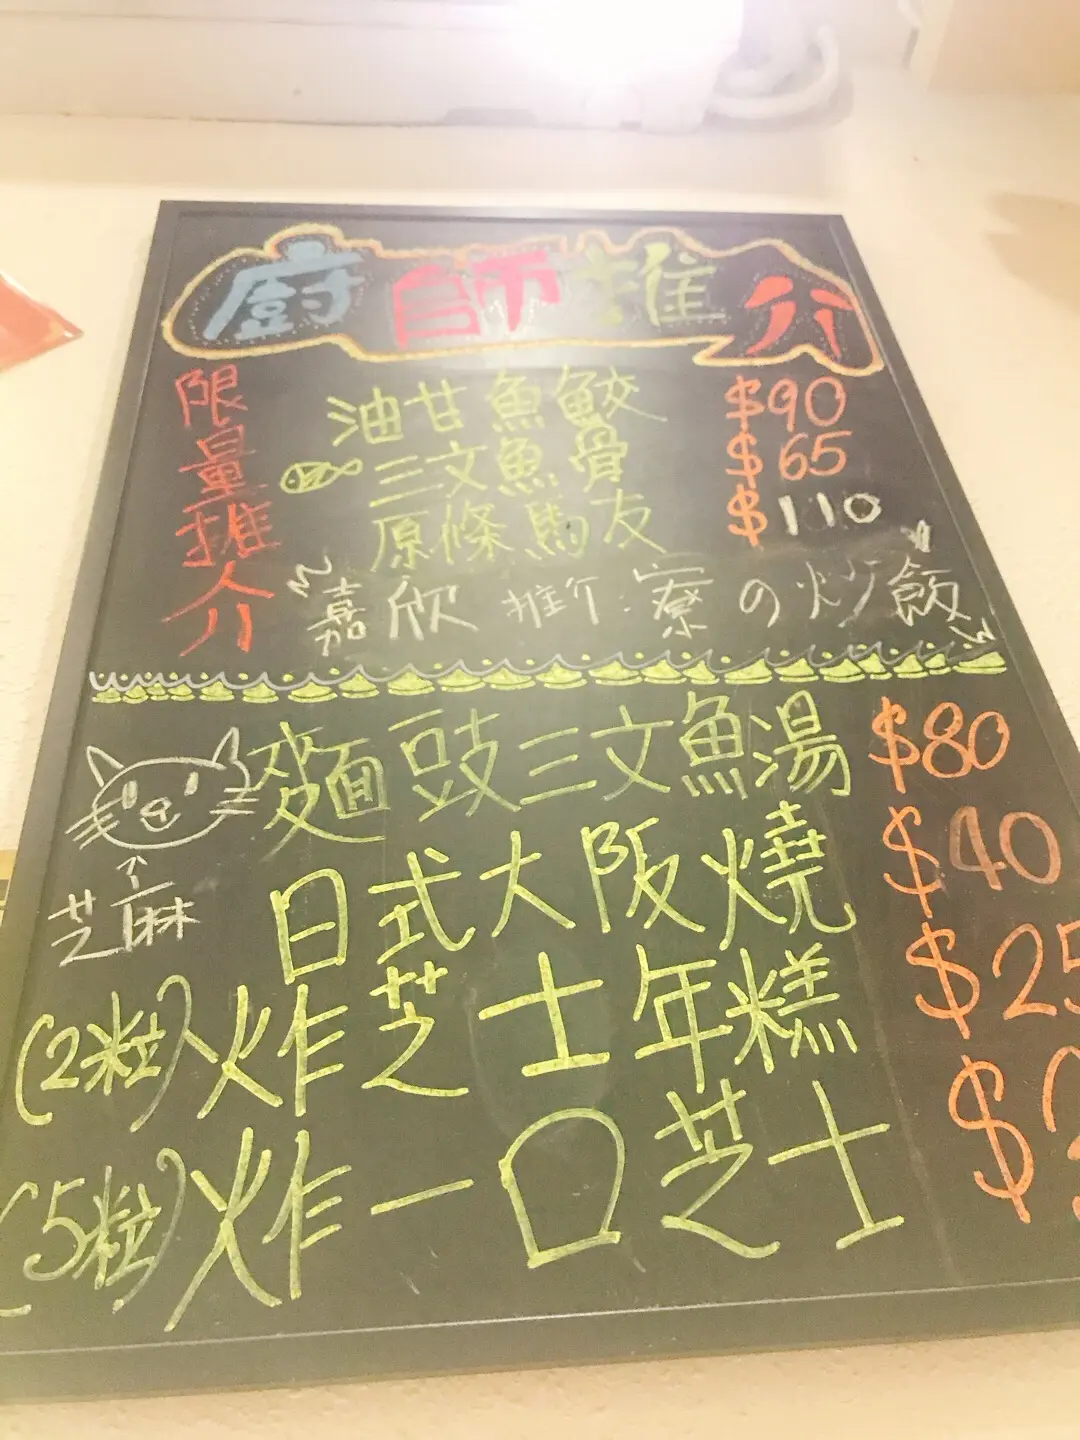 廚師推介
限量推介
油甘魚鮫 $90
三文魚骨 $65
原條馬友 $110
嘉欣推介:寮の炒飯
麵豉三文魚湯 $80
芝麻
日式大阪燒 $40
(2粒)炸芝士年糕 $25
(5粒)炸一口芝士 $